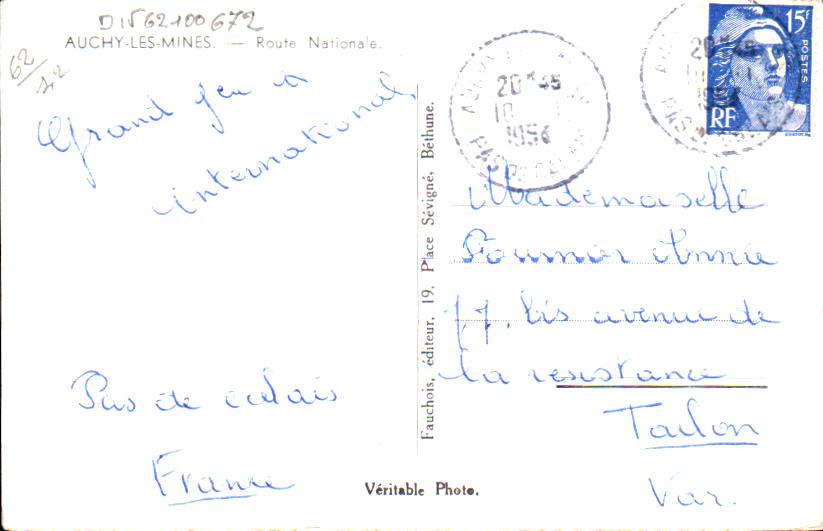 DIV62100672
AUCHY-LES-MINES. — Route Nationale.
62/
Grand feu a
international
Pas de calais
France
Fauchois, éditeur, 19, Place Sévigné, Béthune.
Véritable Photo.
20 H 45
10
1954
PAS DE CALAIS
20 H 45
15F
POSTES
RF
Mademoiselle
Fournier Annie
77. bis avenue de
la resistance
Toulon
Var.